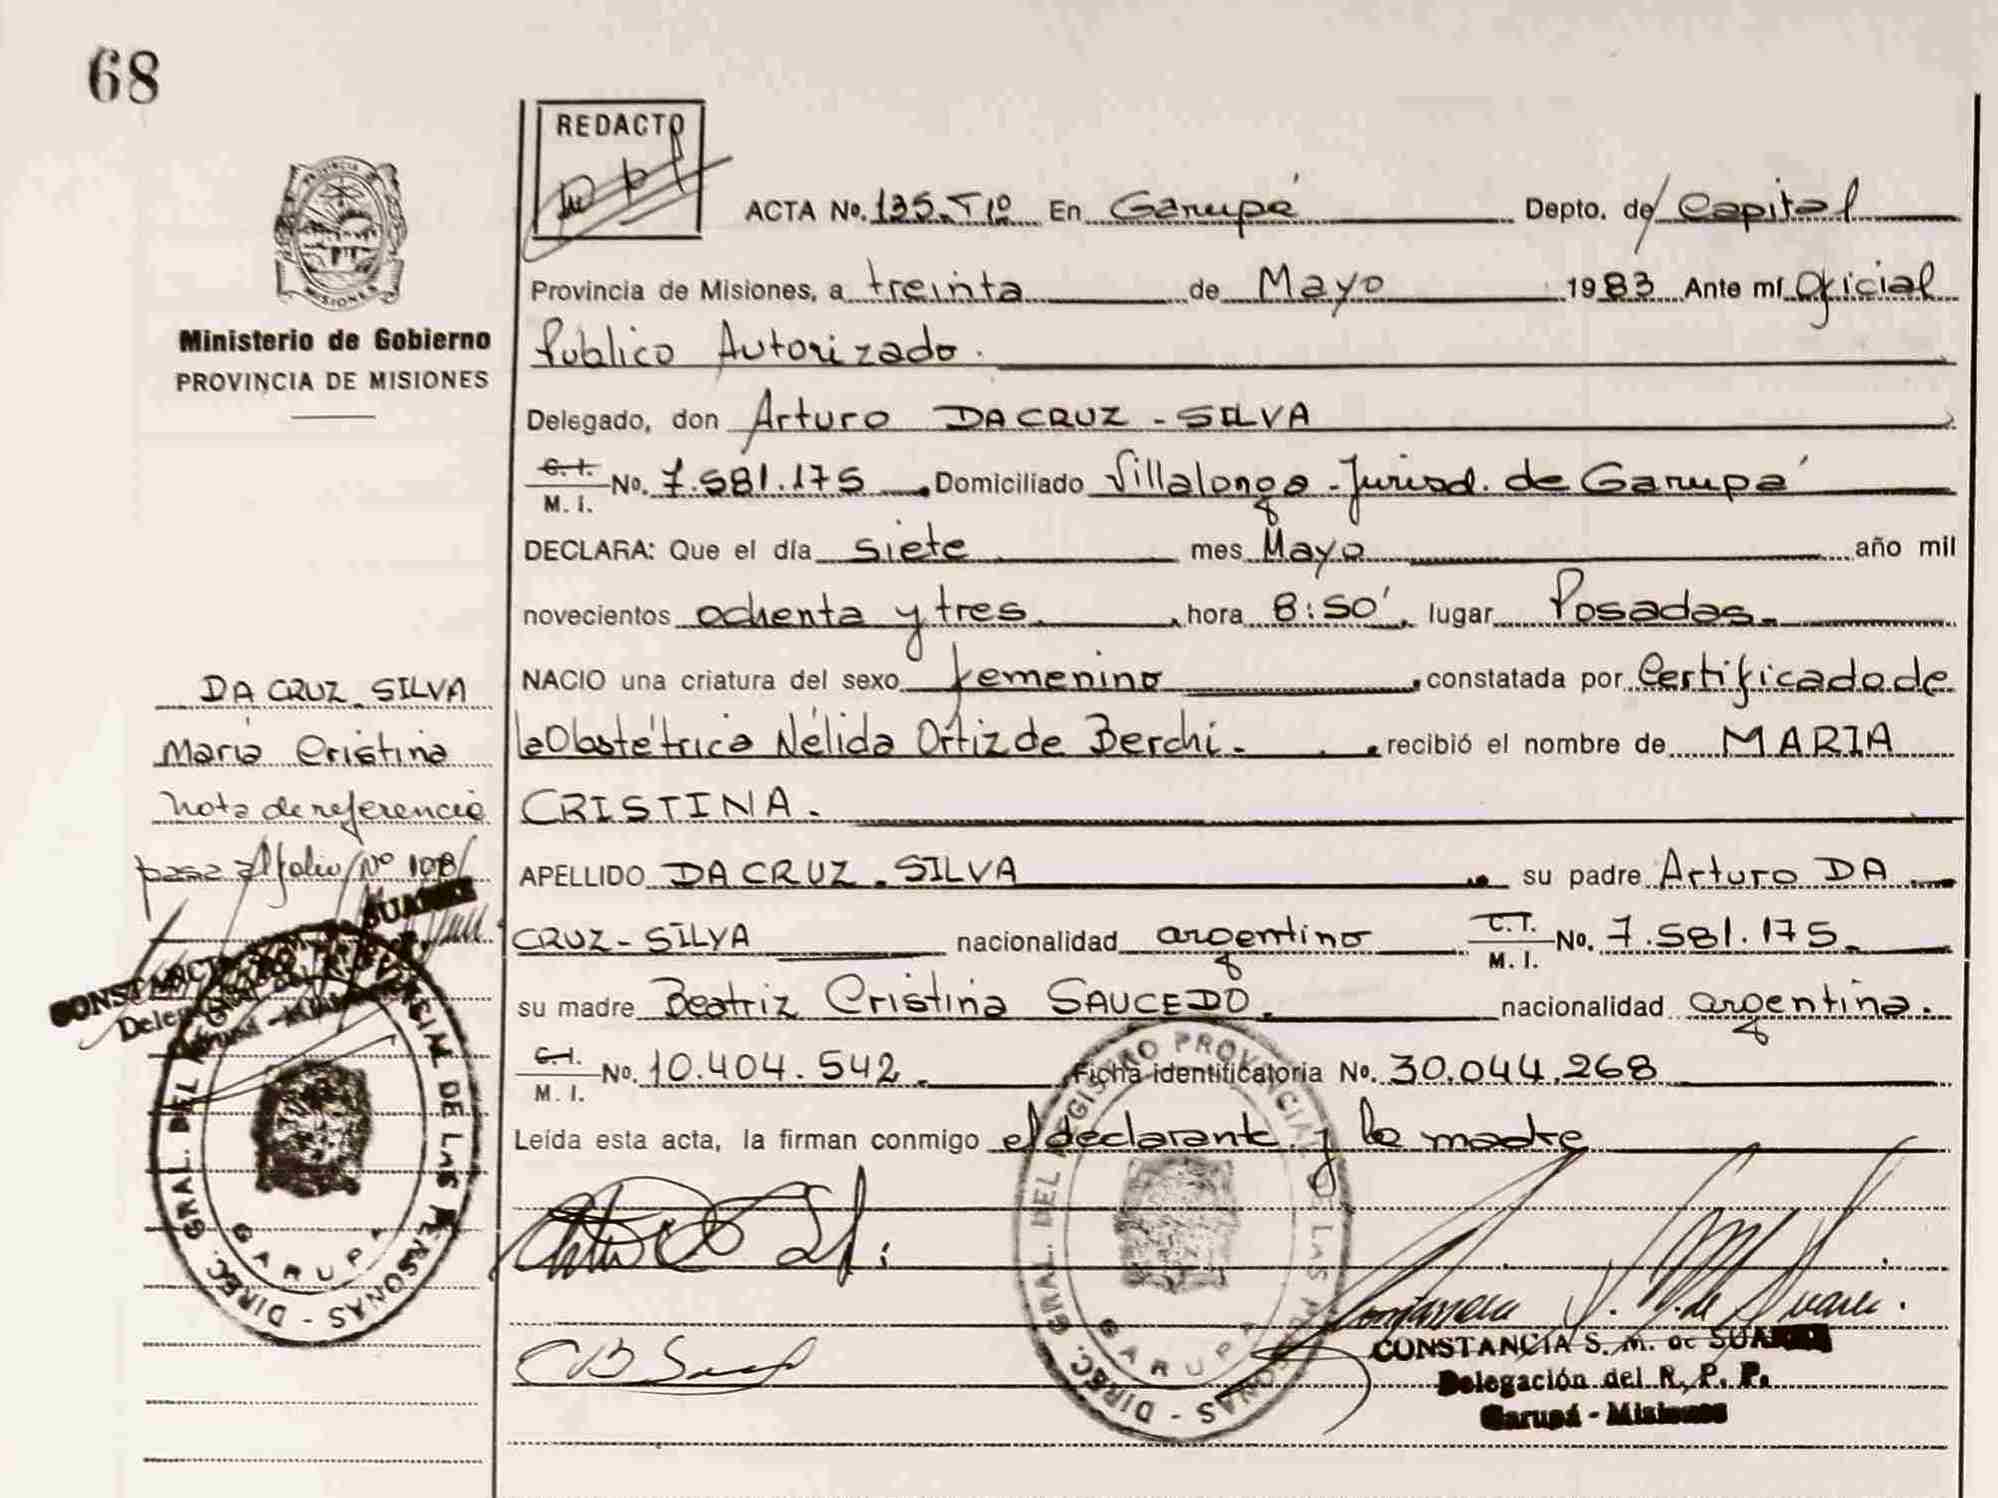 68
REDACTO
PROVINCIA DE
MISIONES
Ministerio de Gobierno
PROVINCIA DE MISIONES
ACTA No. 135. Tº Iº En Garupá Depto. de Capital
Provincia de Misiones, a treinta de Mayo 1983 Ante mí Oficial
Público Autorizado.
Delegado, don Arturo DA CRUZ - SILVA
C. I. M. I. No. 7.581.175 Domiciliado Villalonga - Jurisd. de Garupá
DECLARA: Que el día siete mes Mayo año mil
novecientos ochenta y tres. hora 8:50' lugar Posadas.
NACIO una criatura del sexo femenino, constatada por Certificado de
la Obstétrica Nélida Ortiz de Berchi. recibió el nombre de MARIA
CRISTINA.
APELLIDO DA CRUZ - SILVA su padre Arturo DA
CRUZ - SILVA nacionalidad argentino C.I. M. I. No. 7.581.175.
su madre Beatriz Cristina SAUCEDO. nacionalidad argentina.
C. I. M. I. No. 10.404.542. Ficha identificatoria No. 30.044.268
Leída esta acta, la firman conmigo el declarante y la madre
DA CRUZ - SILVA
María Cristina
Nota de referencia
pasa al folio Nº 108
DIREC. GRAL. DEL REGISTRO PROVINCIAL DE LAS PERSONAS - GARUPA
DIREC. GRAL. DEL REGISTRO PROVINCIAL DE LAS PERSONAS - GARUPA
CONSTANCIA S. M. de SUAREZ
Delegación del R. P. P.
Garupá - Misiones